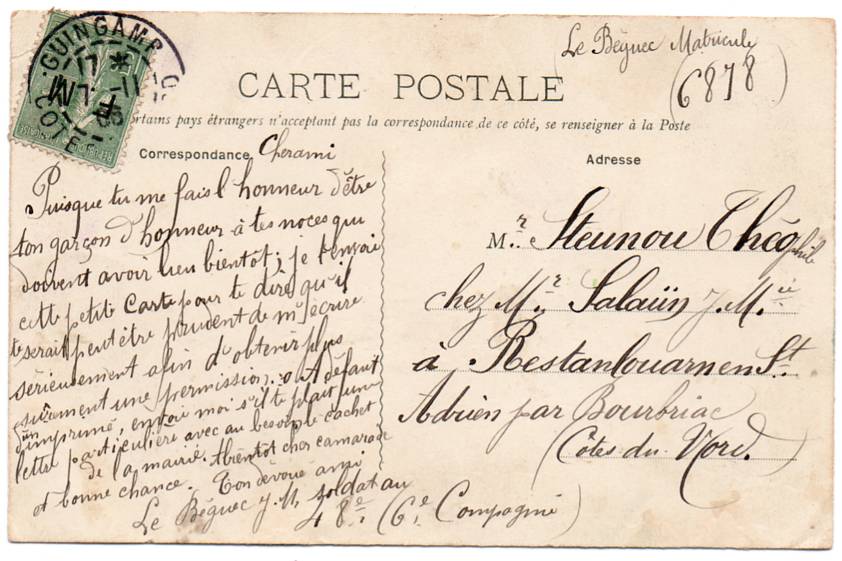 Le Béguec Matricule
(6878)
GUINGAMP
CARTE POSTALE
ertains pays étrangers n'acceptant pas la correspondance de ce côté, se renseigner à la Poste
Correspondance
Cher ami
Puisque tu me fais l'honneur d'être
ton garçon d'honneur à tes noces qui
doivent avoir lieu bientot; je t'envoi
cette petite Carte pour te dire qu'il
te serait peut être prudent de m'écrire
sérieusement afin d'obtenir plus
surement une permission. A défaut
d'un imprimé, envoie moi s'il te plait une
lettre particulière avec au besoin le cachet
de la mairie. Abientôt cher camarade
et bonne chance. Ton dévoué ami
Le Béguec J. M, soldat au
48e (6e Compagnie)
Adresse
Mr. Steunou Théophile
chez Mr. Salaün J. Mie
à Restanlouarnen St
Adrien par Bourbriac
(Côtes du Nord.)